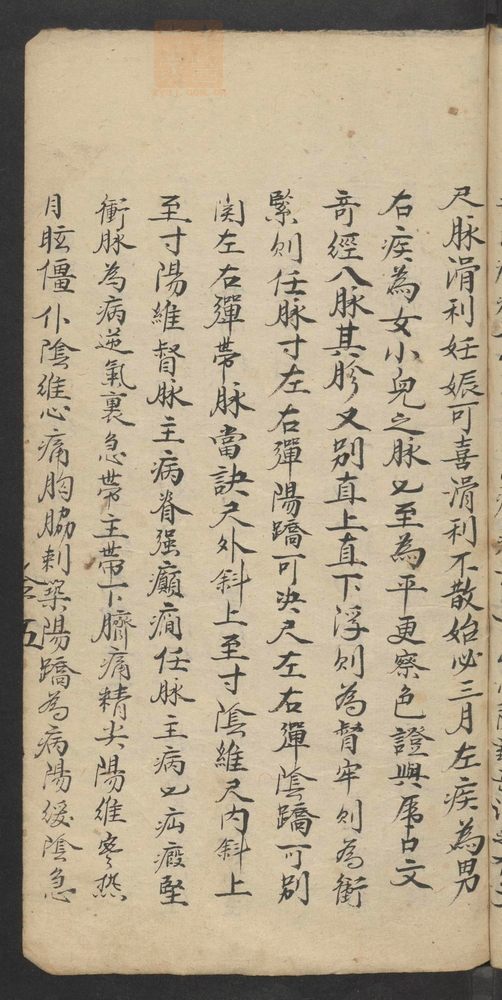 尺脉滑利妊娠可喜滑利不散始必三月左疾為男
右疾為女小兒之脉七至為平更察色證與虎口文
奇經八脉其胗又别直上直下浮则為督牢则為衝
緊则任脉寸左右彈陽蹻可决尺左右彈陰蹻可别
関左右彈帶脉當訣尺外斜上至寸陰維尺内斜上
至寸陽維督脉主病脊强癲癇任脉主病七疝瘕堅
衝脉為病逆氣裏急帶主帶下臍痛精失陽維寒熱
目眩僵仆陰維心痛胸脇刺築陽蹻為病陽緩陰急
五